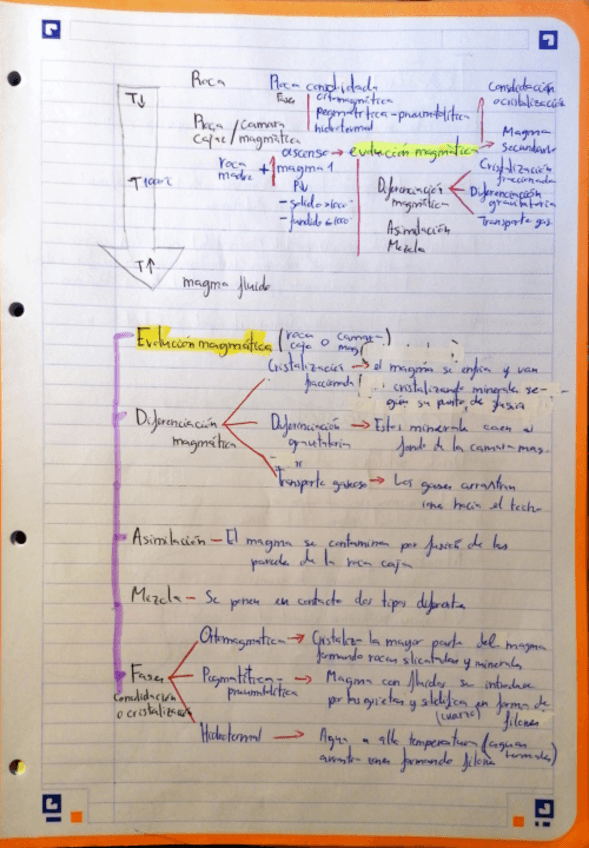 Roca Roca consolidada Consolidación
T↓ Fases ortomagmática o cristalización
Roca / Camara pegmatítica - pneumatolítica
caja / magmática hidrotermal Magma
ascenso → evolución magmática → secundario
roca + magma 1 Cristalización
madre fraccionada
T 1000ºC Diferenciación Diferenciación
- solido > 1000 magmática gravitatoria
- fundido ≤ 1000 Transporte gas
Asimilación
Mezcla
T↑
magma fluido
Evolución magmática (roca caja o camara mag
Cristalización → el magma se enfria y van
fraccionada cristalizando minerales se-
gún su punto de fusión
Diferenciación Diferenciación → Estos minerales caen al
magmática gravitatoria fondo de la camara mag.
Transporte gaseoso → Los gases arrastran
hacia el techo
Asimilación - El magma se contamina por fusión de las
paredes de la roca caja
Mezcla - Se ponen en contacto dos tipos diferentes
Ortomagmatica → Cristaliz la mayor parte del magma
formando rocas silicatadas y minerales
Fases Pegmatítica - → Magma con fluidos se introduce
pneumatolítica por las grietas y solidifica en forma de
Consolidación (cuarzo) filones
o cristalización
Hidrotermal → Agua a alta temperatura (aguas termales)
formando filones